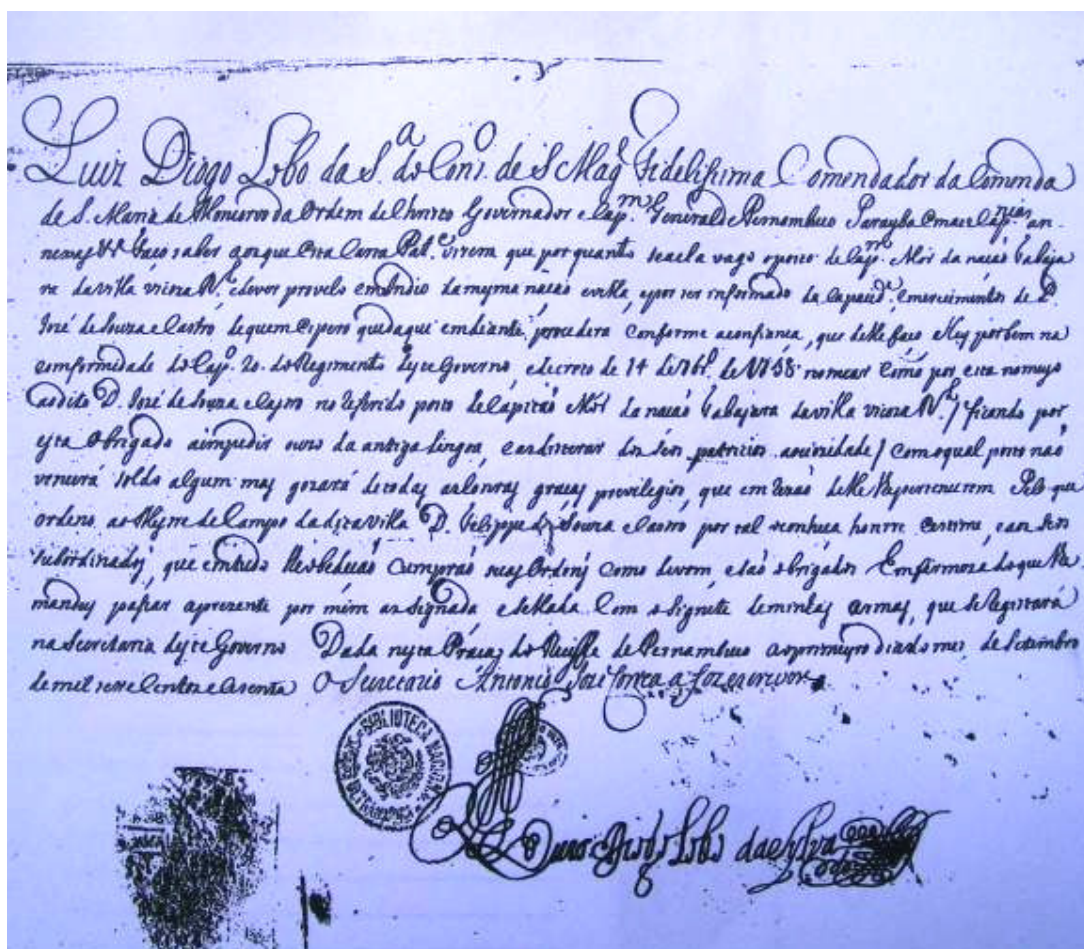 Luiz Diogo Lobo da S.ᵃ do Con.º de S Mag.ᵉ Fidelissima Comendador da Comenda
de S. Maria de Moncorvo da Ordem de Christo Governador e Cap.ᵐ General de Pernambuco Parayba e mais Cap.ⁿⁱᵃˢ an-
nexas &ᵃ Faço saber aos que esta Carta Pat.ᵉ virem que por quanto se acha vago o posto de Cap.ᵐ Mór da nação Tabaja
ra da villa viçoza R.ˡ e dever provelo em Indio da mesma nação e villa, e por ser informado da capacid.ᵉ e merecimentos de D.
José de Souza e Castro de quem espero que daqui em diante procederá conforme a confiança, que delle faço Hey por bem na
comformidade do Cap.º 20. do Regimento deste Governo, e decreto de 14 de 7br.º de 1758 nomear como por esta nomeyo
ao dito D. José de Souza e Castro no referido posto de Capitão Mór da nação Tabajara da villa viçoza R.ˡ / ficando por
esta obrigado a impedir o uzo da antiga lingoa, e a os seus patricios a ociozidade / com o qual posto não
vencerá soldo algum mas gozará de todas as honras graças previlegios, que em rezão delle lhe pertencerem Pelo que
ordeno ao Mestre de Campo da dita villa D. Felippe de Souza e Castro por tal o conheça honrre e estime, e aos seus
subordinados, que em tudo lhe obedeção e cumprão suas Ordens como devem, e são obrigados Em firmeza do que lhe
mandey passar a prezente por mim assignada, e sellada com o signete de minhas armas, que se registrará
na Secretaria deste Governo Dada nesta Praça do Reciffe de Pernambuco ao primeyro dia do mez de Setembro
de mil sete centos e secenta O Secretario Antonio José Correa a fez escrever
BIBLIOTECA NACIONAL
Luiz Diogo Lobo da Sylva